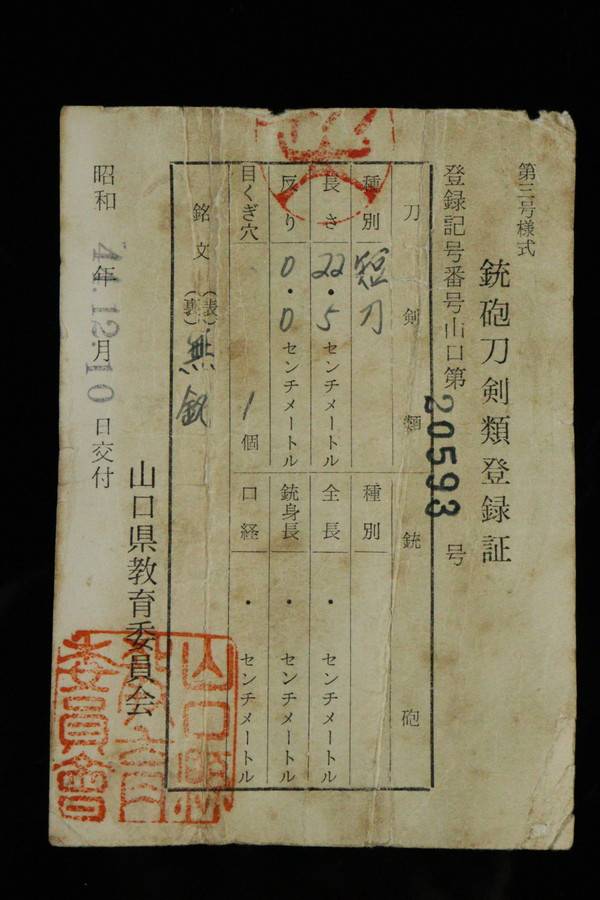 第三号様式
銃砲刀剣類登録証
登録記号番号山口第 20593 号
刀剣類
種別 短刀
長さ 22.5 センチメートル
反り 0.0 センチメートル
目くぎ穴 1 個
銘文 (表)(裏) 無銘
銃砲
種別
全長 ・ センチメートル
銃身長 ・ センチメートル
口経 ・ センチメートル
昭和 年 月 日交付
41.12.10
山口県教育委員会
山口縣
教育
委員會